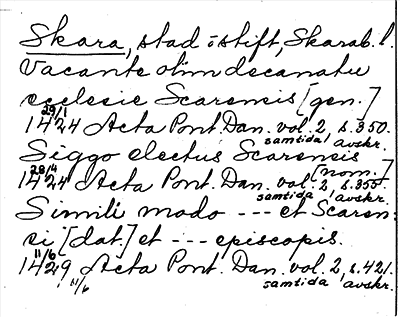 Skara, stad o stift, Skarab. l.
Vacante olim decanatu
ecclesie Scarensis [gen.]
29/1 1424 Acta Pont. Dan. vol. 2, s. 350.
samtida avskr.
Siggo electus Scarensis
[nom.]
28/4 1424 Acta Pont. Dan. vol. 2, s. 355.
samtida avskr.
Simili modo --- et Scaren-
si [dat.] et --- episcopis.
11/6 1429 Acta Pont. Dan. vol. 2, s. 421.
11/6 samtida avskr.